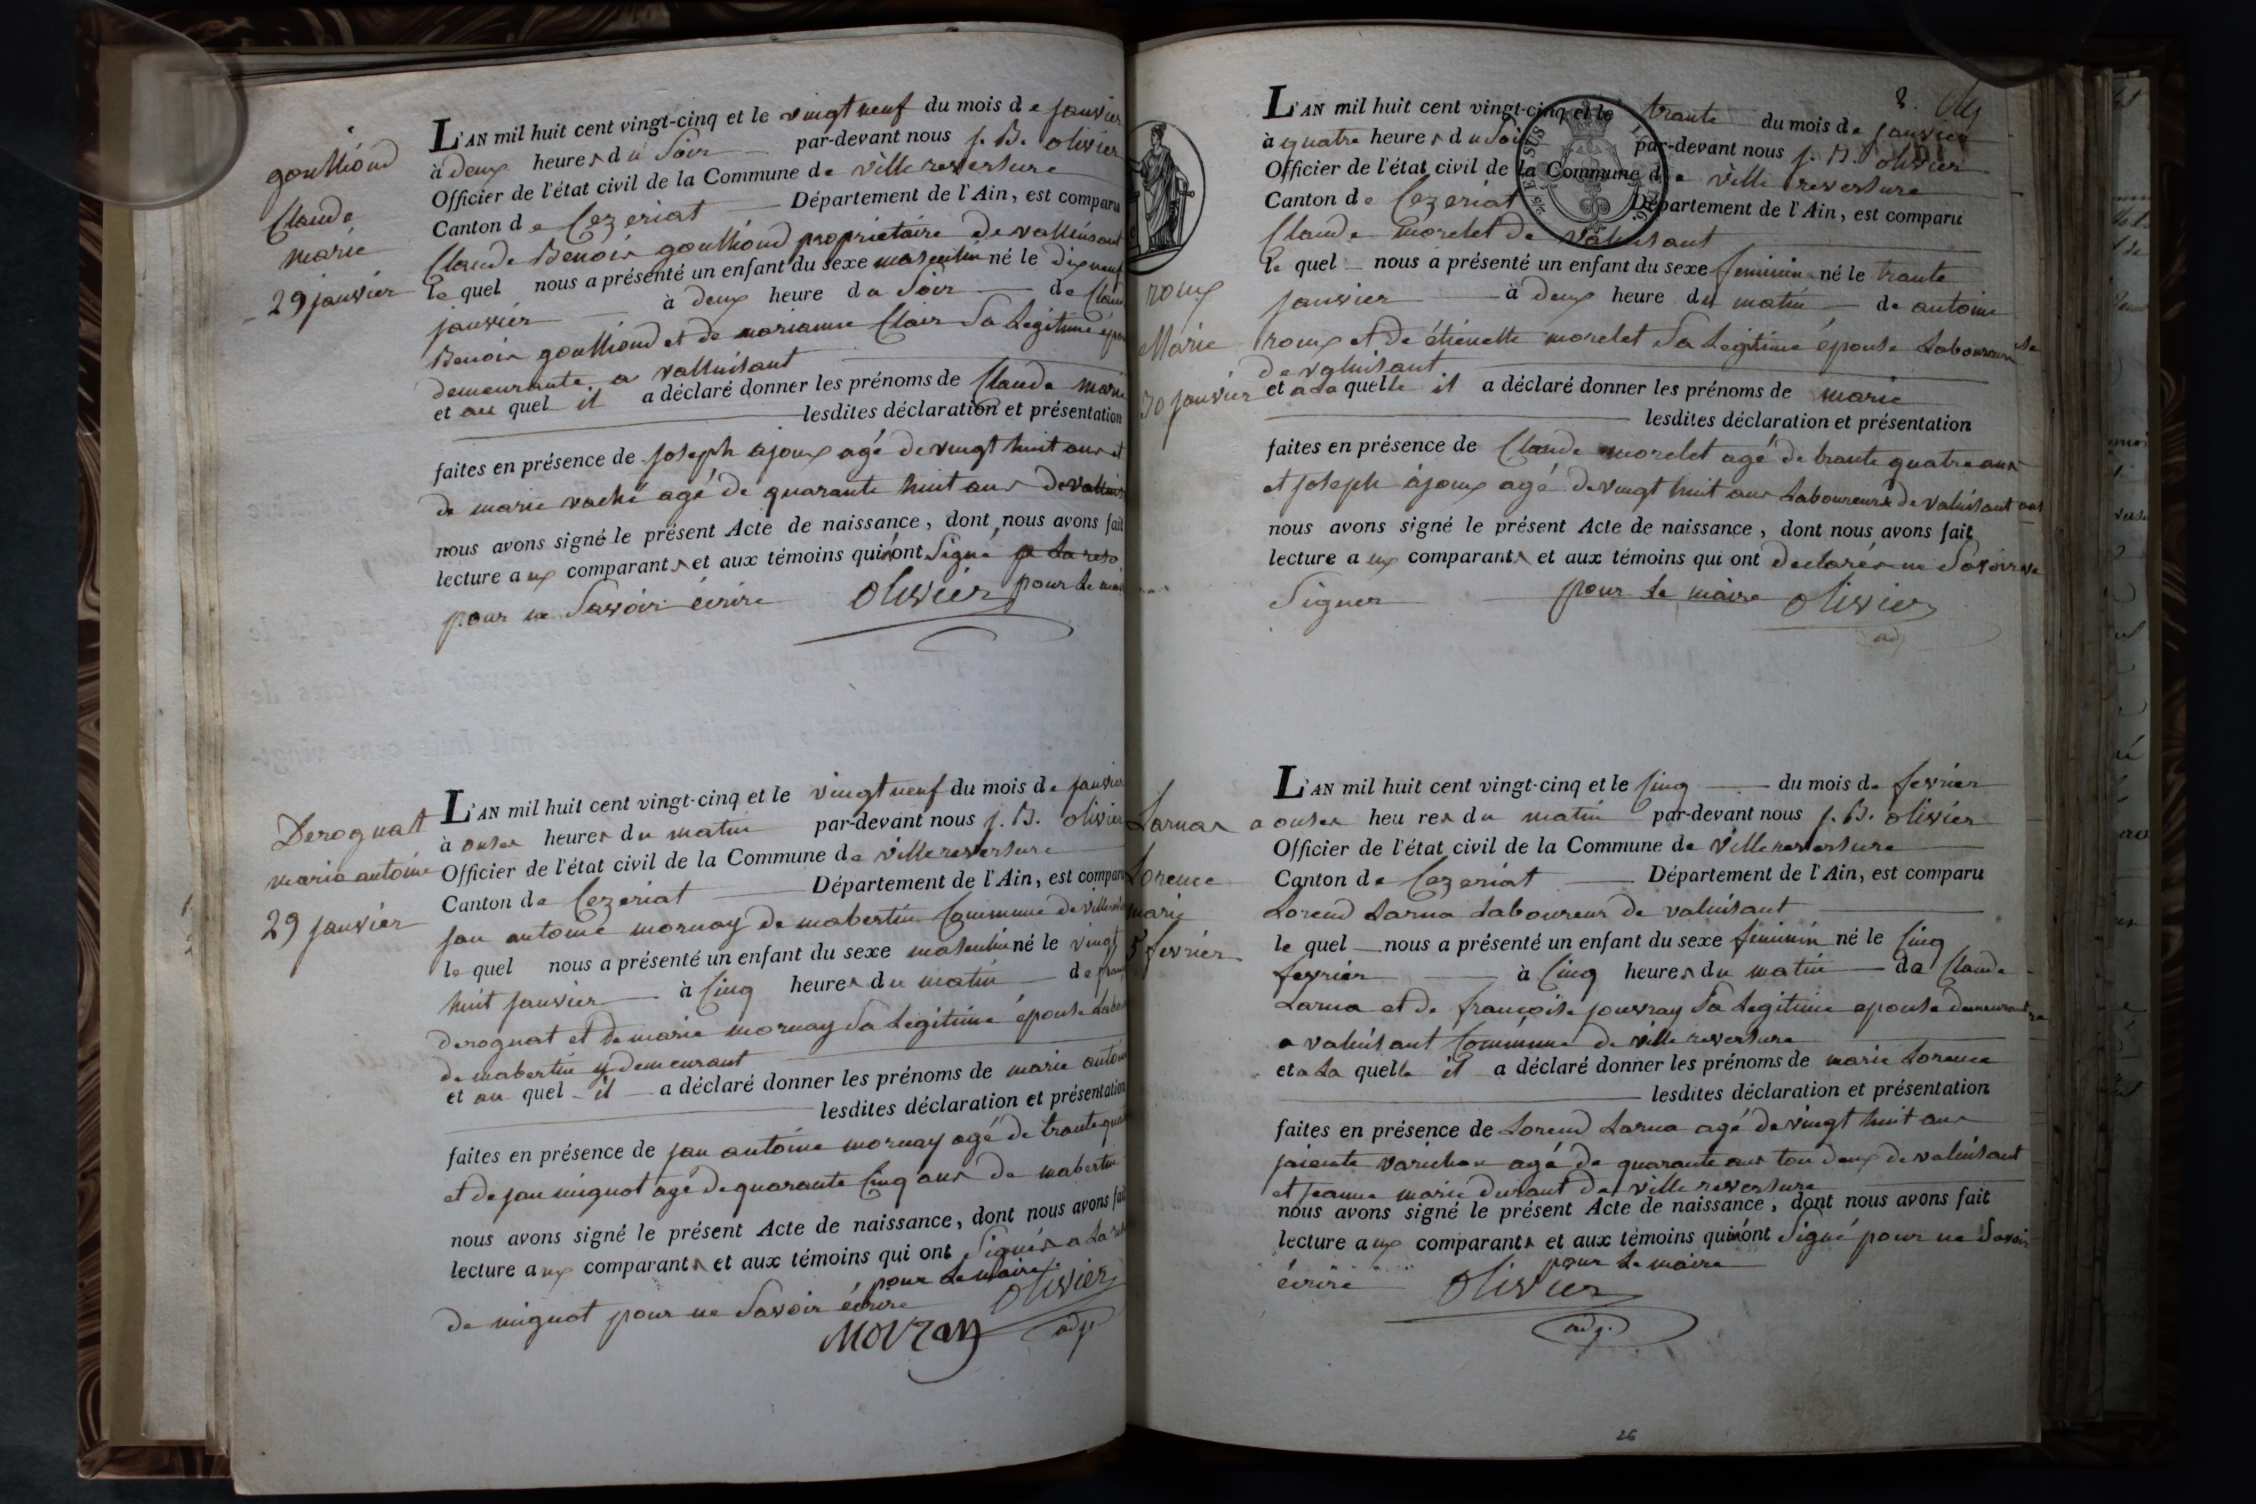 goullioud
Claude
marie
29 janvier
L'AN mil huit cent vingt-cinq et le vingt neuf du mois de janvier
à deux heures du Soir par-devant nous j. B. olivier
Officier de l'état civil de la Commune de ville reversure
Canton de Cezeriat Département de l'Ain, est comparu
Claude Benoir goullioud propriétaire de valluisant
le quel nous a présenté un enfant du sexe masculin né le dix neuf
janvier à deux heure du Soir de Claude
Benoir goullioud et de marianne Clair Sa Legitime
demeurante a valluisant
et au quel il a déclaré donner les prénoms de Claude marie
lesdites déclaration et présentation
faites en présence de joseph ajoux agé de vingt huit ans et
de marie vaché agé de quarante huit ans de
nous avons signé le présent Acte de naissance, dont nous avons fait
lecture aux comparants et aux témoins qui n'ont Signé
pour ne Savoir écrire olivier pour le
Derognat
marie antoine
29 janvier
L'AN mil huit cent vingt-cinq et le vingt neuf du mois de janvier
à onses heures du matin par-devant nous j. B. olivier
Officier de l'état civil de la Commune de ville reversure
Canton de Cezeriat Département de l'Ain, est comparu
jan antoine mornay de mabertin Commune de
le quel nous a présenté un enfant du sexe masculin né le vingt
huit janvier à Cinq heures du matin de
derognat et de marie mornay Sa Legitime épouse
de mabertin y demeurant
et au quel il a déclaré donner les prénoms de marie antoine
lesdites déclaration et présentation
faites en présence de jan antoine mornay agé de trante
et de jan mignot agé de quarante Cinq ans de mabertin
nous avons signé le présent Acte de naissance, dont nous avons fait
lecture aux comparants et aux témoins qui ont Signés a La
de mignot pour ne Savoir écrire pour Le maire
olivier
adj.
8.
roux
Marie
30 janvier
L'AN mil huit cent vingt-cinq et le trante du mois de janvier
à quatre heures du Soir par-devant nous j. B. olivier
Officier de l'état civil de la Commune de ville reversure
Canton de Cezeriat Département de l'Ain, est comparu
Claude morelet de valuisant
le quel nous a présenté un enfant du sexe feminin né le trante
janvier à deux heure du matin de antoine
roux et de étienette morelet Sa Legitime épouse Laboureur
de valuisant
et a La quelle il a déclaré donner les prénoms de marie
lesdites déclaration et présentation
faites en présence de Claude morelet agé de trante quatre ans
et joseph àjoux agé de vingt huit ans Laboureurs de valuisant
nous avons signé le présent Acte de naissance, dont nous avons fait
lecture aux comparants et aux témoins qui ont declarés ne Savoir
Signer pour Le maire olivier
Larnas
Lorence
marie
5 fevrier
L'AN mil huit cent vingt-cinq et le Cinq du mois de fevrier
a onses heures du matin par-devant nous j. B. olivier
Officier de l'état civil de la Commune de Ville reversure
Canton de Cezeriat Département de l'Ain, est comparu
Lorend Larna Laboureur de valuisant
le quel nous a présenté un enfant du sexe feminin né le Cinq
fevrier à Cinq heures du matin de Claude
Larna et de françoise jouvray Sa Legitime epouse demeurant
a valuisant Commune de ville reversure
et a La quelle il a déclaré donner les prénoms de marie Lorence
lesdites déclaration et présentation
faites en présence de Lorend Larna agé de vingt huit ans
jaiente varichon agé de quarante ans tou deux de valuisant
et jeanne marie durant de ville reversure
nous avons signé le présent Acte de naissance, dont nous avons fait
lecture aux comparants et aux témoins qui n'ont Signé pour ne Savoir
écrire pour Le maire
olivier
adj.
26